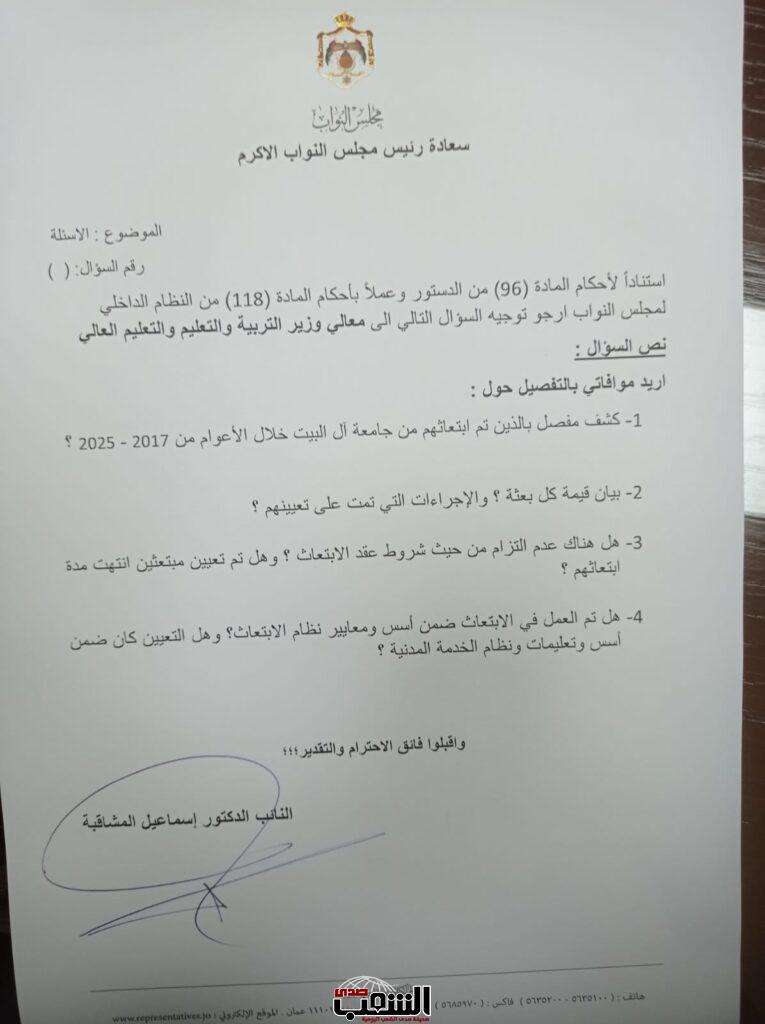 مجلس النواب
سعادة رئيس مجلس النواب الاكرم
الموضوع : الاسئلة
رقم السؤال: ( )
استناداً لأحكام المادة (96) من الدستور وعملاً بأحكام المادة (118) من النظام الداخلي
لمجلس النواب ارجو توجيه السؤال التالي الى معالي وزير التربية والتعليم والتعليم العالي
نص السؤال :
اريد موافاتي بالتفصيل حول :
1- كشف مفصل بالذين تم ابتعاثهم من جامعة آل البيت خلال الأعوام من 2017 - 2025 ؟
2- بيان قيمة كل بعثة ؟ والإجراءات التي تمت على تعيينهم ؟
3- هل هناك عدم التزام من حيث شروط عقد الابتعاث ؟ وهل تم تعيين مبتعثين انتهت مدة
ابتعاثهم ؟
4- هل تم العمل في الابتعاث ضمن أسس ومعايير نظام الابتعاث؟ وهل التعيين كان ضمن
أسس وتعليمات ونظام الخدمة المدنية ؟
واقبلوا فائق الاحترام والتقدير؛؛؛
النائب الدكتور إسماعيل المشاقبة
هاتف : ( ٥٦٣٥١٠٠ - ٥٦٣٥٢٠٠ ) فاكس : ( ٥٦٨٥٩٧٠ ) عمان . الموقع الإلكتروني : www.representatives.jo
صدى الشعب
صحيفة صدى الشعب اليومية